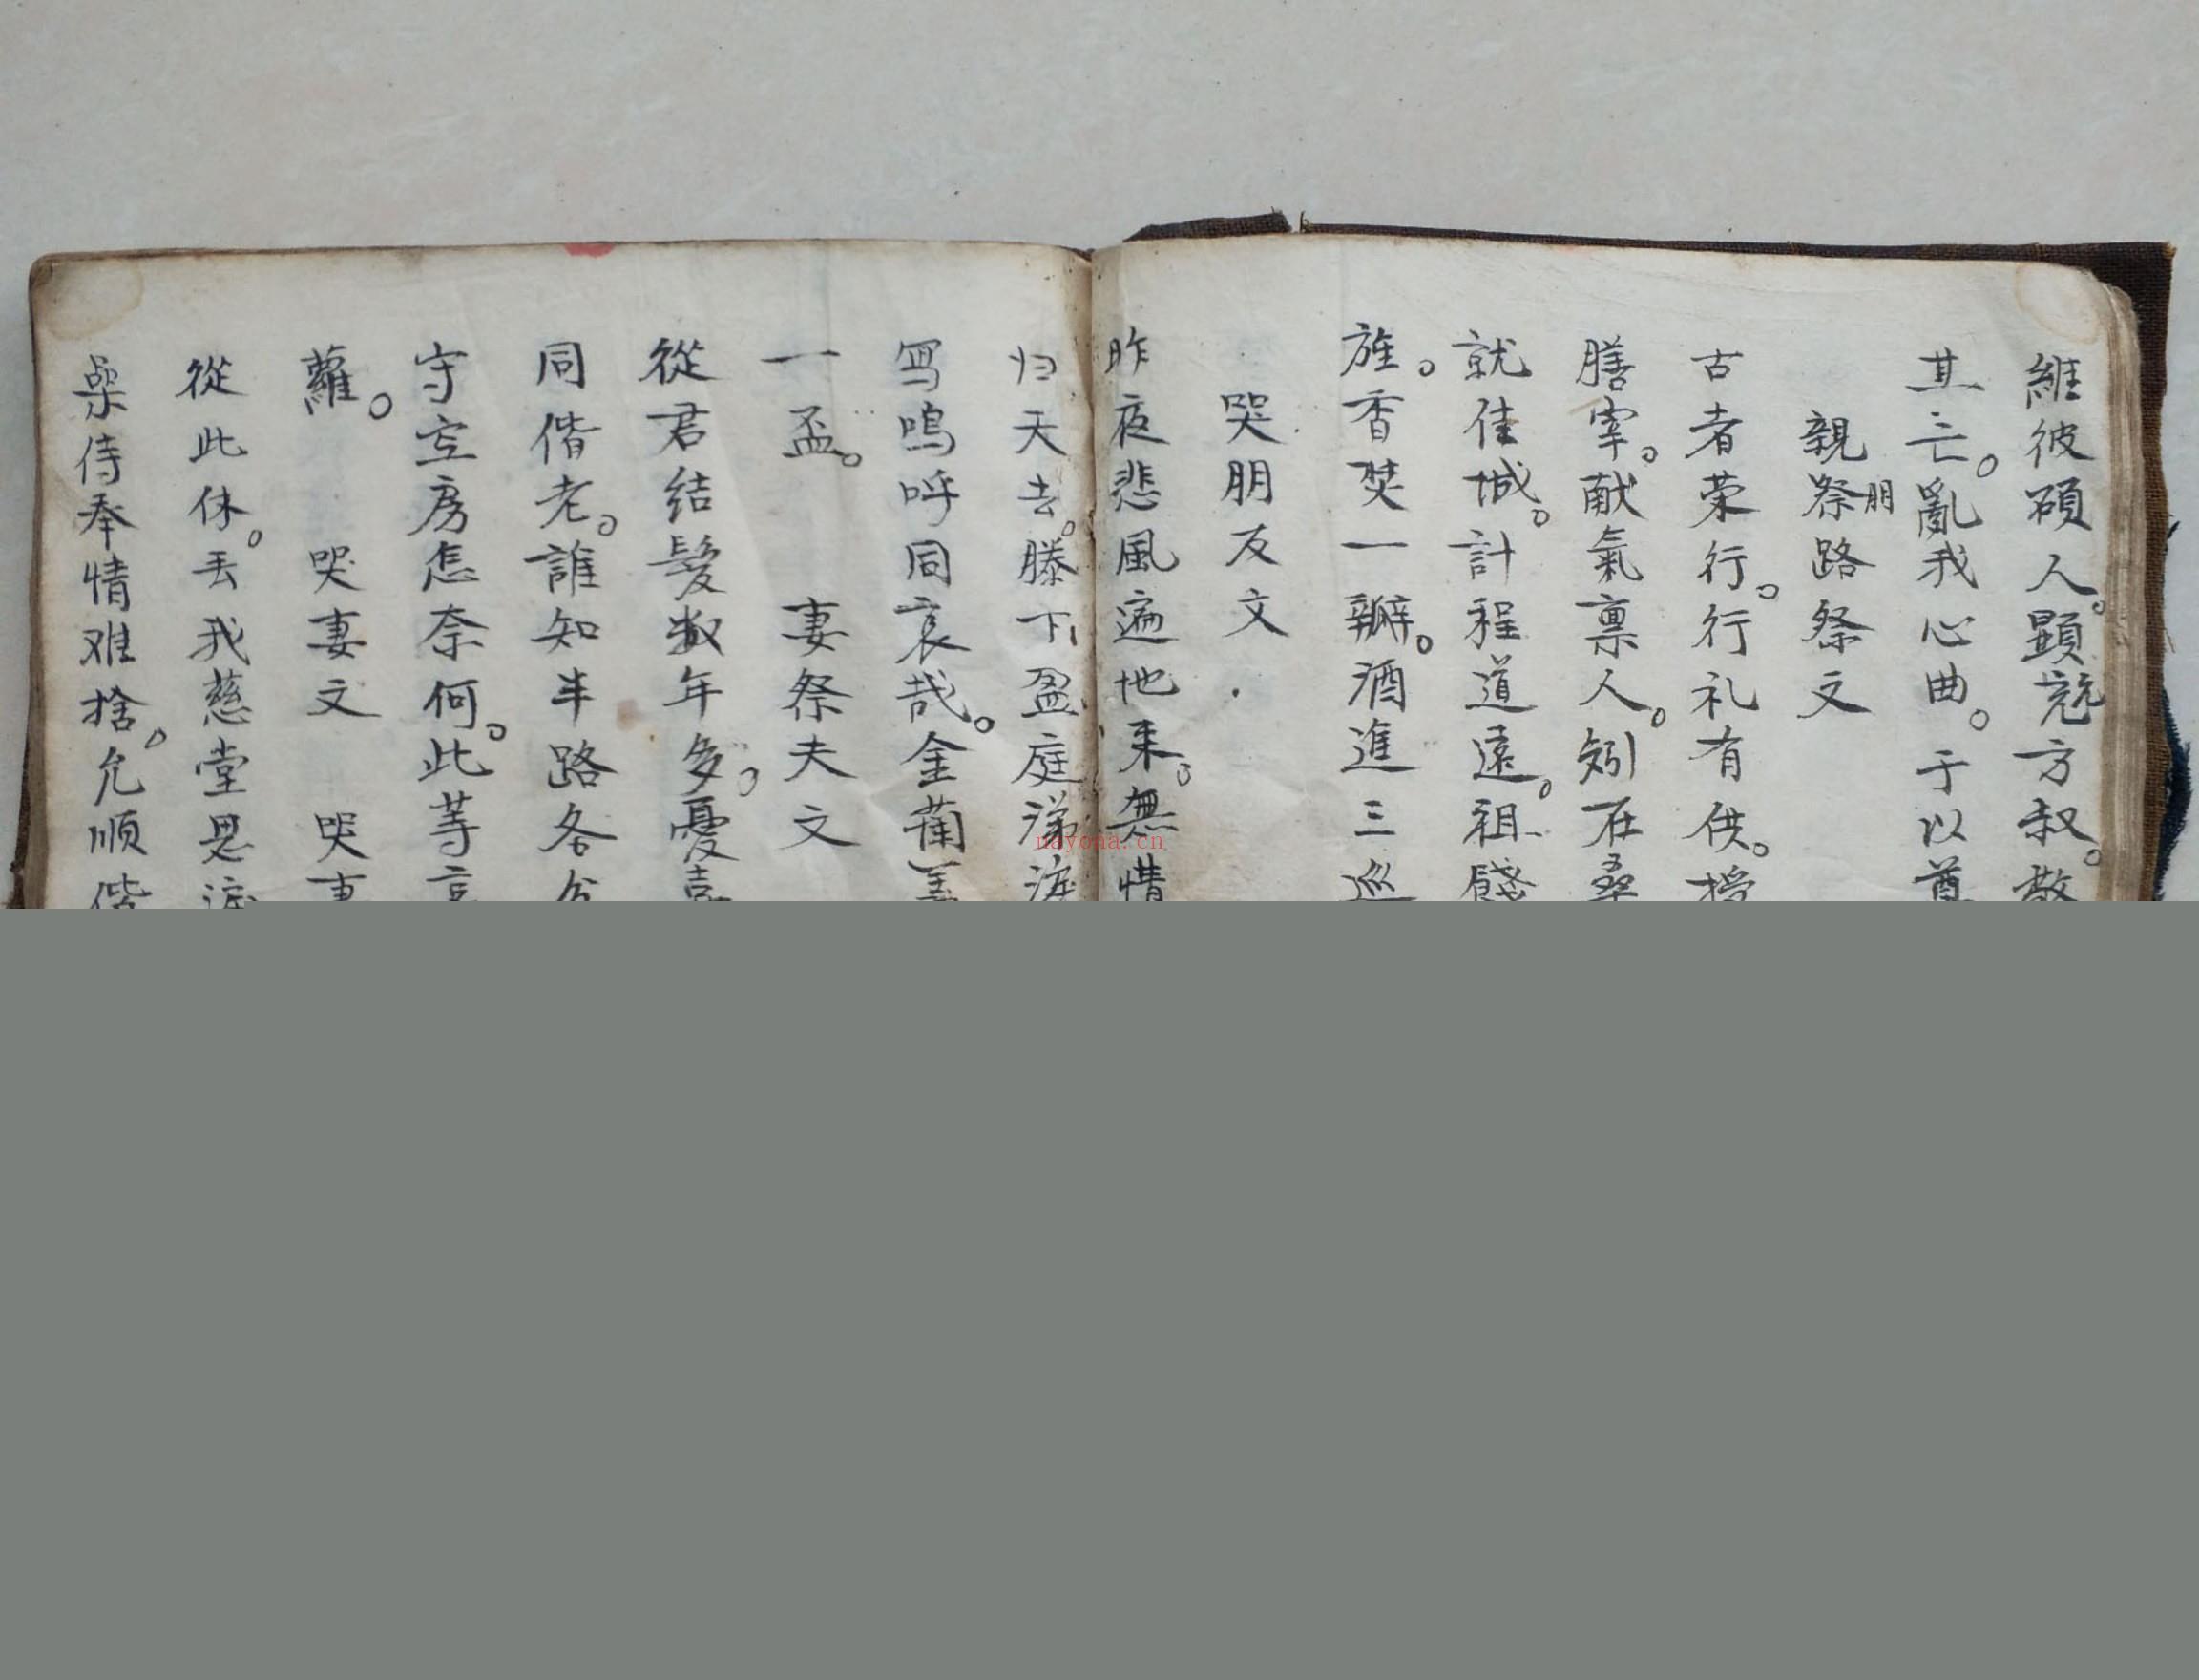 維彼碩人。顕兢方叔。敬
其亡。亂我心曲。于以尊
親朋祭路祭文
古者荣行。行礼有供。授
膳宰。献氣禀人。矧在桑
就佳城。計程道遠。祖餞
旌。香焚一瓣。酒進三巡
哭朋友文
昨夜悲風遍地来。無情
归天去。滕下盈庭涕淚
骂嗚呼同哀哉。金蘭
一盃。 妻祭夫文
從君结髮数年多。憂喜
同偕老。誰知半路各分
守空房怎奈何。此等
蘿。 哭妻文 哭妻
從此休。丢我慈堂思淚
侍奉情难捨。允順偕
nayona.cn